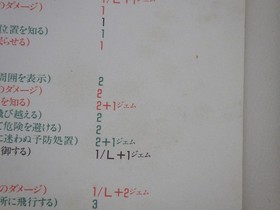 のダメージ) 1/L+1ジェム
1
1
位置を知る) 1
眠らせる) 1
周囲を表示) 2
のダメージ) 2
を知る) 2+1ジェム
飛び越える) 2
て危険を避ける) 2
に迷わぬ予防処置) 2+1ジェム
御する) 1/L+1ジェム
のダメージ) 1/L+2ジェム
所に飛行する) 3